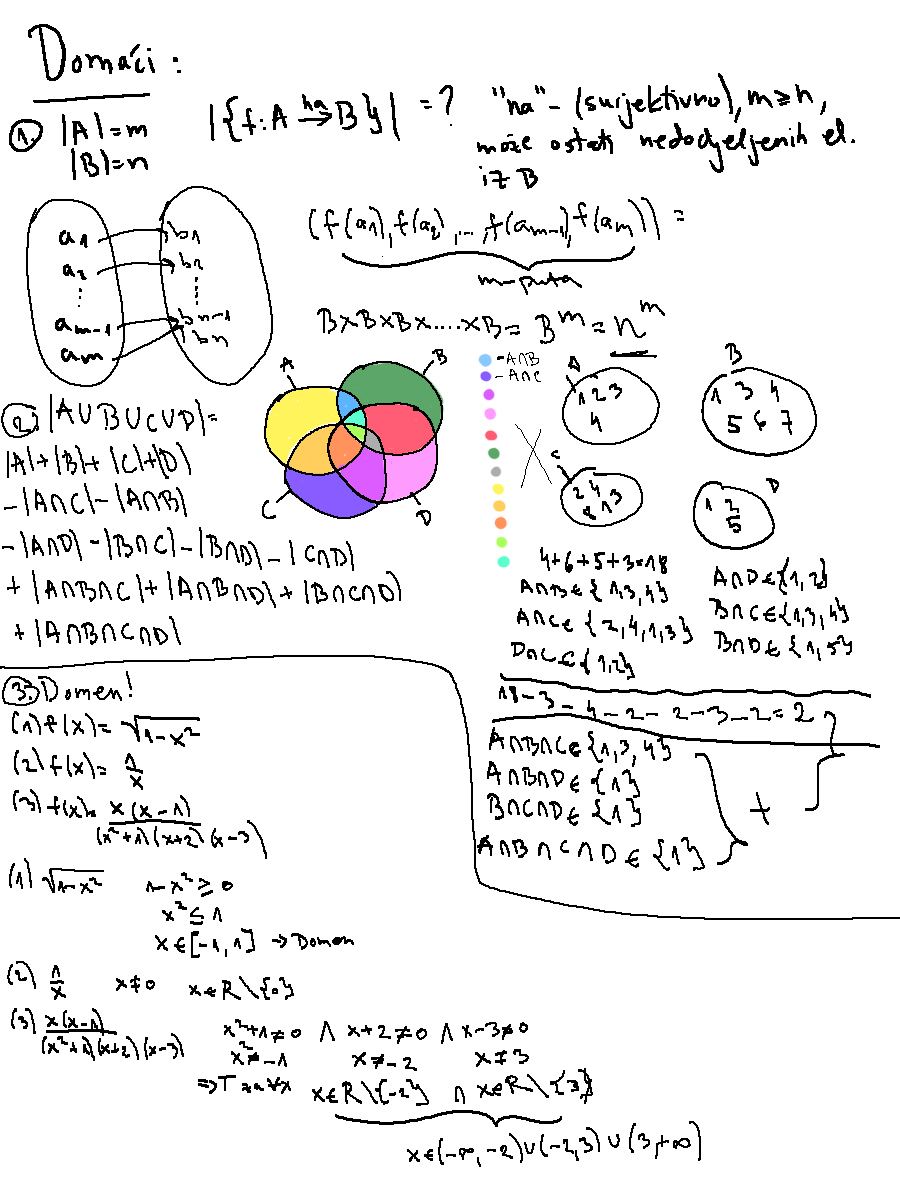 Domaći:
1. |A|=m
|B|=n
|{f:A →na B}| =?
"na" - (surjektivno), m≥n,
može ostati nedodjeljenih el.
iz B
a1
a2
am-1
am
b1
b2
bn-1
bn
(f(a1), f(a2), ..., f(am-1), f(am)) =
m-puta
B×B×B×....×B = B^m = n^m
2. |A∪B∪C∪D|=
|A|+|B|+|C|+|D|
-|A∩C|-|A∩B|
-|A∩D|-|B∩C|-|B∩D|-|C∩D|
+|A∩B∩C|+|A∩B∩D|+|B∩C∩D|
+|A∩B∩C∩D|
A
B
C
D
-A∩B
-A∩C
A
1 2 3
4
B
1 3 4
5 6 7
C
2 4
8 1 3
D
1 2
5
4+6+5+3=18
A∩B∈{1,3,4}
A∩C∈{2,4,1,3}
D∩C∈{1,2}
A∩D∈{1,2}
B∩C∈{1,3,4}
B∩D∈{1,5}
18-3-4-2-2-3-2=2
A∩B∩C∈{1,3,4}
A∩B∩D∈{1}
B∩C∩D∈{1}
A∩B∩C∩D∈{1}
+
3. Domen!
(1) f(x)=√(1-x²)
(2) f(x)= 1/x
(3) f(x)= x(x-1)/(x²+1)(x+2)(x-3)
(1) √1-x² 1-x²≥0
x²≤1
x∈[-1,1] → Domen
(2) 1/x x≠0 x∈R\{0}
(3) x(x-1)/(x²+1)(x+2)(x-3) x²+1≠0 ∧ x+2≠0 ∧ x-3≠0
x²≠-1 x≠-2 x≠3
⇒T za ∀x x∈R\{-2} ∩ x∈R\{3}
x∈(-∞,-2)∪(-2,3)∪(3,+∞)